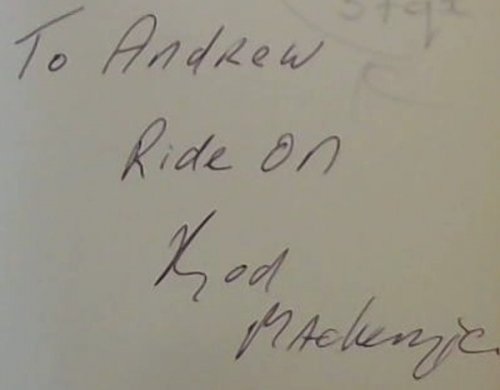 To Andrew
Ride On
Rod
Mackenzie.